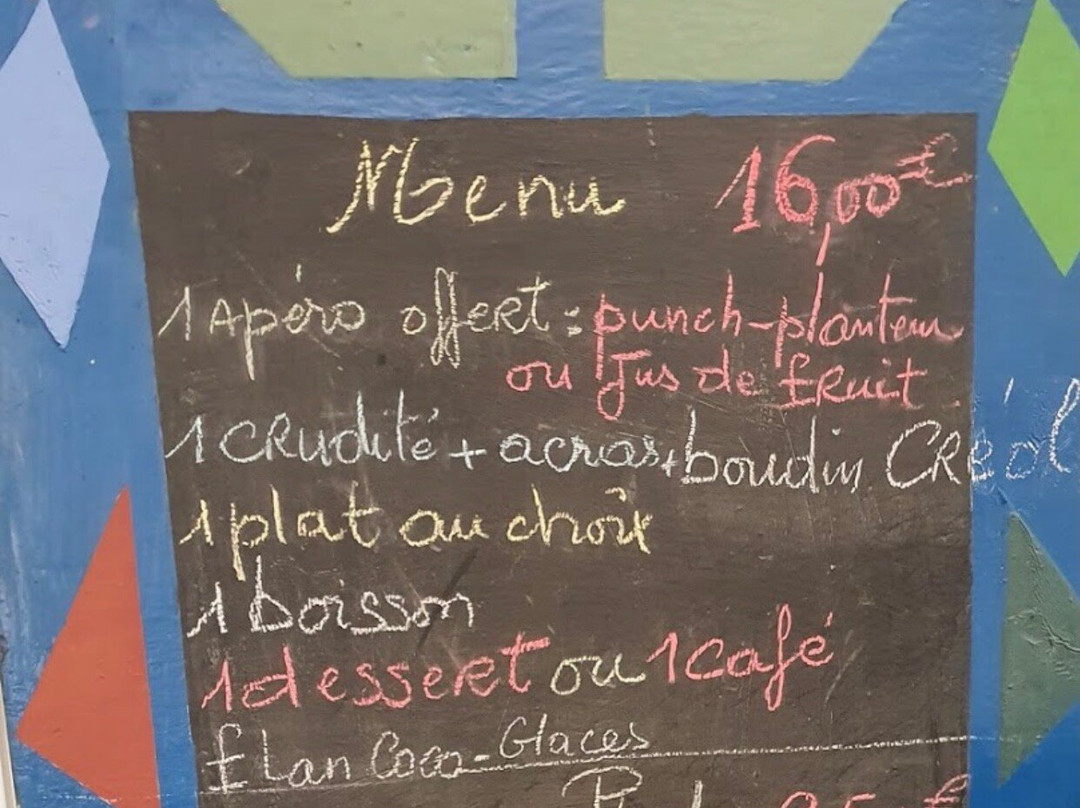 Menu 16,00€
1 Apéro offert : punch-planteur
ou Jus de fruit
1 CRudité + acras + boudin CRéol
1 plat au choix
1 boisson
1 dessert ou 1 café
flan Coco - Glaces